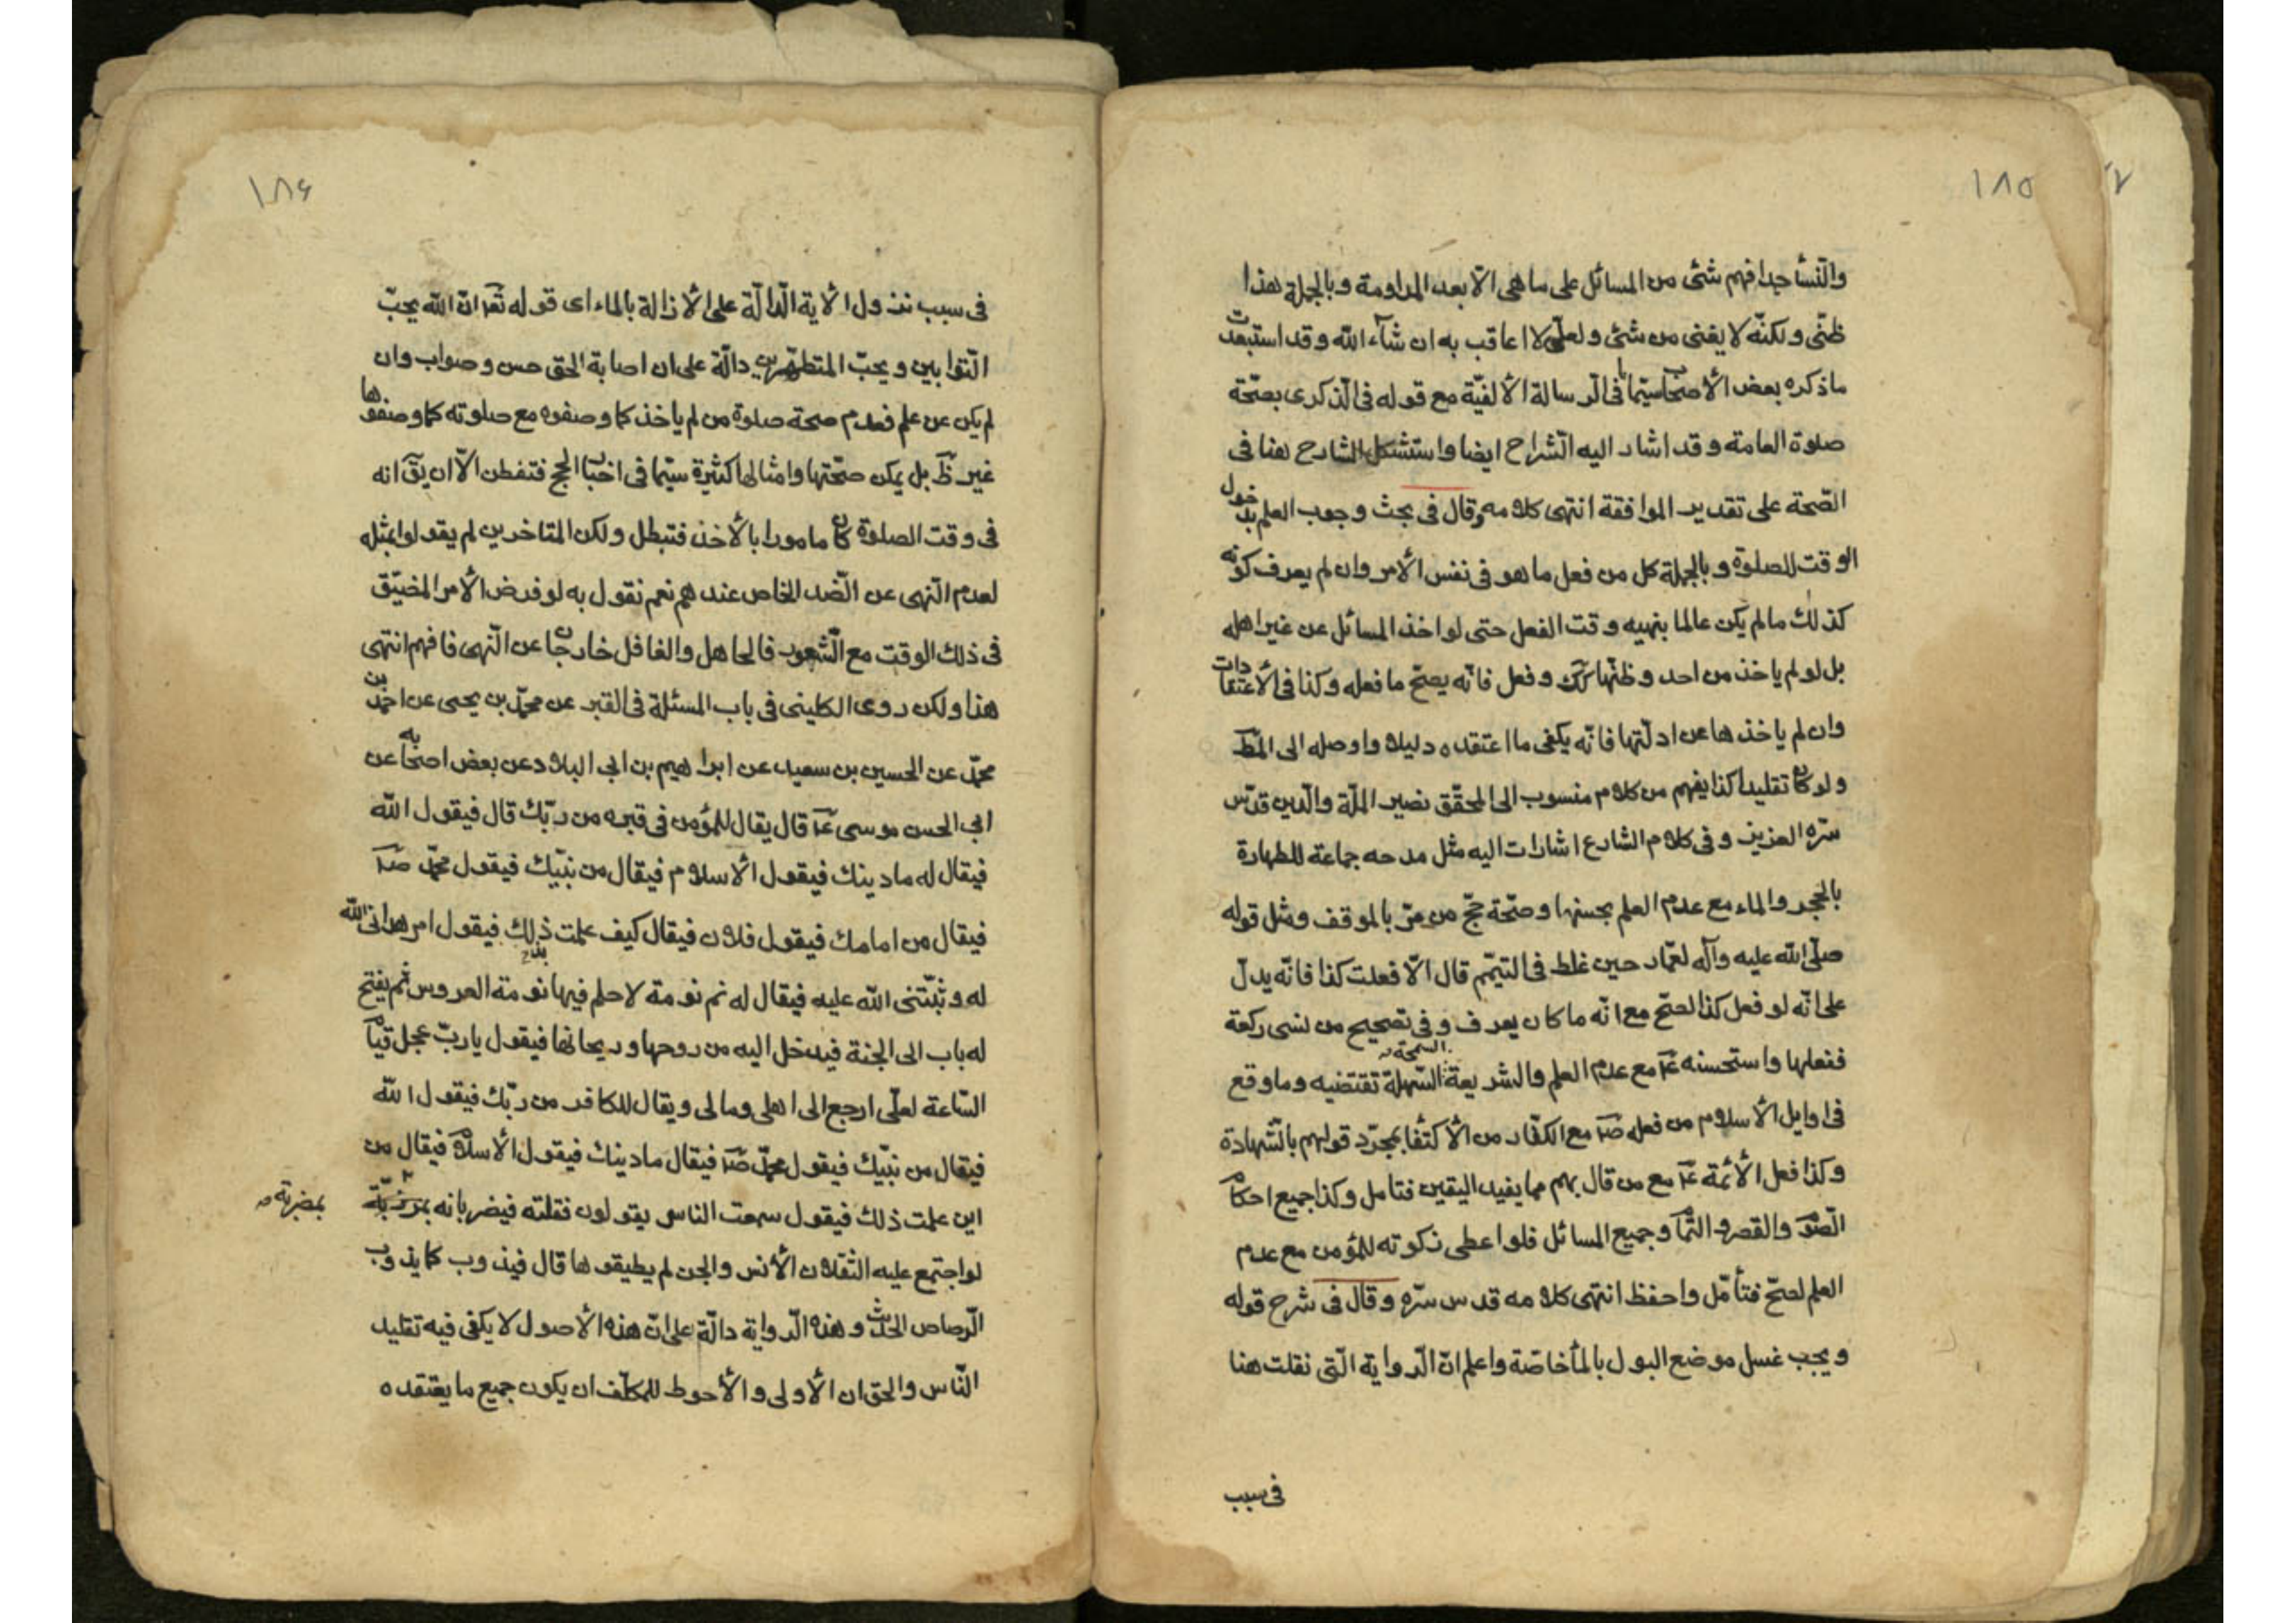 ١٨٥
والنسأ جدا فهم شئ من المسائل على ما هى الّا بعد المداومة وبالجملة هذا
ظنّى ولكنّه لا يغنى من شئ ولعلّى لا اعاقب به ان شآء الله وقد استبعدت
ما ذكره بعض الأصحاب سيّما فى الرسالة الألفيّة مع قوله فى الذكرى بصحّة
صلوة العامة وقد اشار اليه الشراح ايضا واستشكل الشارح هنا فى
الصّحة على تقدير الموافقة انتهى كلامه وقال فى بحث وجوب العلم بدخول
الوقت للصلوة وبالجملة كل من فعل ما هو فى نفس الأمر وان لم يعرف كونه
كذلك ما لم يكن عالما بنهيه وقت الفعل حتى لو اخذ المسائل عن غير اهله
بل لو لم ياخذ من احد وظنّها كك وفعل فانّه يصحّ ما فعله وكذا فى الأعتقادات
وان لم ياخذها عن ادلّتها فانّه يكفى ما اعتقده دليلا واوصله الى المط
ولو كان تقليدا كذا يفهم من كلام منسوب الى المحقّق نصير الملّة والدين قدّس
سرّه العزيز وفى كلام الشارع اشارات اليه مثل مدحه جماعة للطهارة
بالحجر والماء مع عدم العلم بحسنها وصحّة حجّ من مرّ بالموقف ومثل قوله
صلّى الله عليه وآله لعمّار حين غلط فى التيمّم قال الّا فعلت كذا فانّه يدلّ
على انّه لو فعل كذا لصحّ مع انّه ما كان يعرف وفى تصحيح من نسى ركعة
ففعلها واستحسنه ع‍ مع عدم العلم والشريعة السمحة السّهلة تقتضيه وما وقع
فى اوايل الأسلام من فعله ص‍ مع الكفّار من الأكتفا بمجرّد قولهم بالشّهادة
وكذا فعل الأئمة ع‍ مع من قال بهم مما يفيد اليقين فتامل وكذا جميع احكام
الصّو والقصر والتمآ وجميع المسائل فلو اعطى زكوته للمؤمن مع عدم
العلم لصحّ فتأمّل واحفظ انتهى كلامه قدس سرّه وقال فى شرح قوله
ويجب غسل موضع البول بالمأ خاصّة واعلم انّ الرواية الّتى نقلت هنا
فى سبب
١٨۶
فى سبب نزول الأية الدالّة على الأزالة بالماء اى قوله تعا انّ الله يحبّ
التّوابين ويحبّ المتطهّرين دالّة على ان اصابة الحق حسن وصواب وان
لم يكن عن علم فعدم صحة صلوة من لم ياخذ كما وصفوه مع صلوته كما وصفوها
غير ظ بل يمكن صحّتها وامثالها كثيرة سيّما فى اخبار الحج فتفطن الّا ان يق انه
فى وقت الصلوة كان مامورا بالأخذ فتبطل ولكن المتاخرين لم يقولوا بمثله
لعدم النّهى عن الضّد الخاص عندهم نعم نقول به لو فرض الأمر المضيّق
فى ذلك الوقت مع الشعور فالجاهل والغافل خارجان عن النّهى فافهم انتهى
هذا ولكن روى الكلينى فى باب المسئلة فى القبر عن محمّد بن يحيى عن احمد بن
محمّد عن الحسين بن سعيد عن ابراهيم بن ابى البلاد عن بعض اصحابه عن
ابى الحسن موسى ع‍ قال يقال للمؤمن فى قبره من ربّك قال فيقول الله
فيقال له ما دينك فيقول الأسلام فيقال من نبيّك فيقول محمّد ص‍
فيقال من امامك فيقول فلان فيقال كيف علمت بذلك فيقول امر هدانى الله
له وثبّتنى الله عليه فيقال له نم نومة لا حلم فيها نومة العروس ثم يفتح
له باب الى الجنة فيدخل اليه من روحها وريحانها فيقول يا ربّ عجل قيام
السّاعة لعلّى ارجع الى اهلى ومالى ويقال للكافر من ربّك فيقول الله
فيقال من نبيّك فيقول محمّد ص‍ فيقال ما دينك فيقول الأسلام فيقال من
اين علمت ذلك فيقول سمعت الناس يقولون فقلته فيضربانه بمرزبّة
بمضربة
لو اجتمع عليه الثّقلان الأنس والجن لم يطيقوها قال فيذوب كما يذوب
الرصاص الحديث وهذه الرواية دالّة على انّ هذه الأصول لا يكفى فيه تقليد
النّاس والحق ان الأولى والأحوط للمكلّف ان يكون جميع ما يعتقده